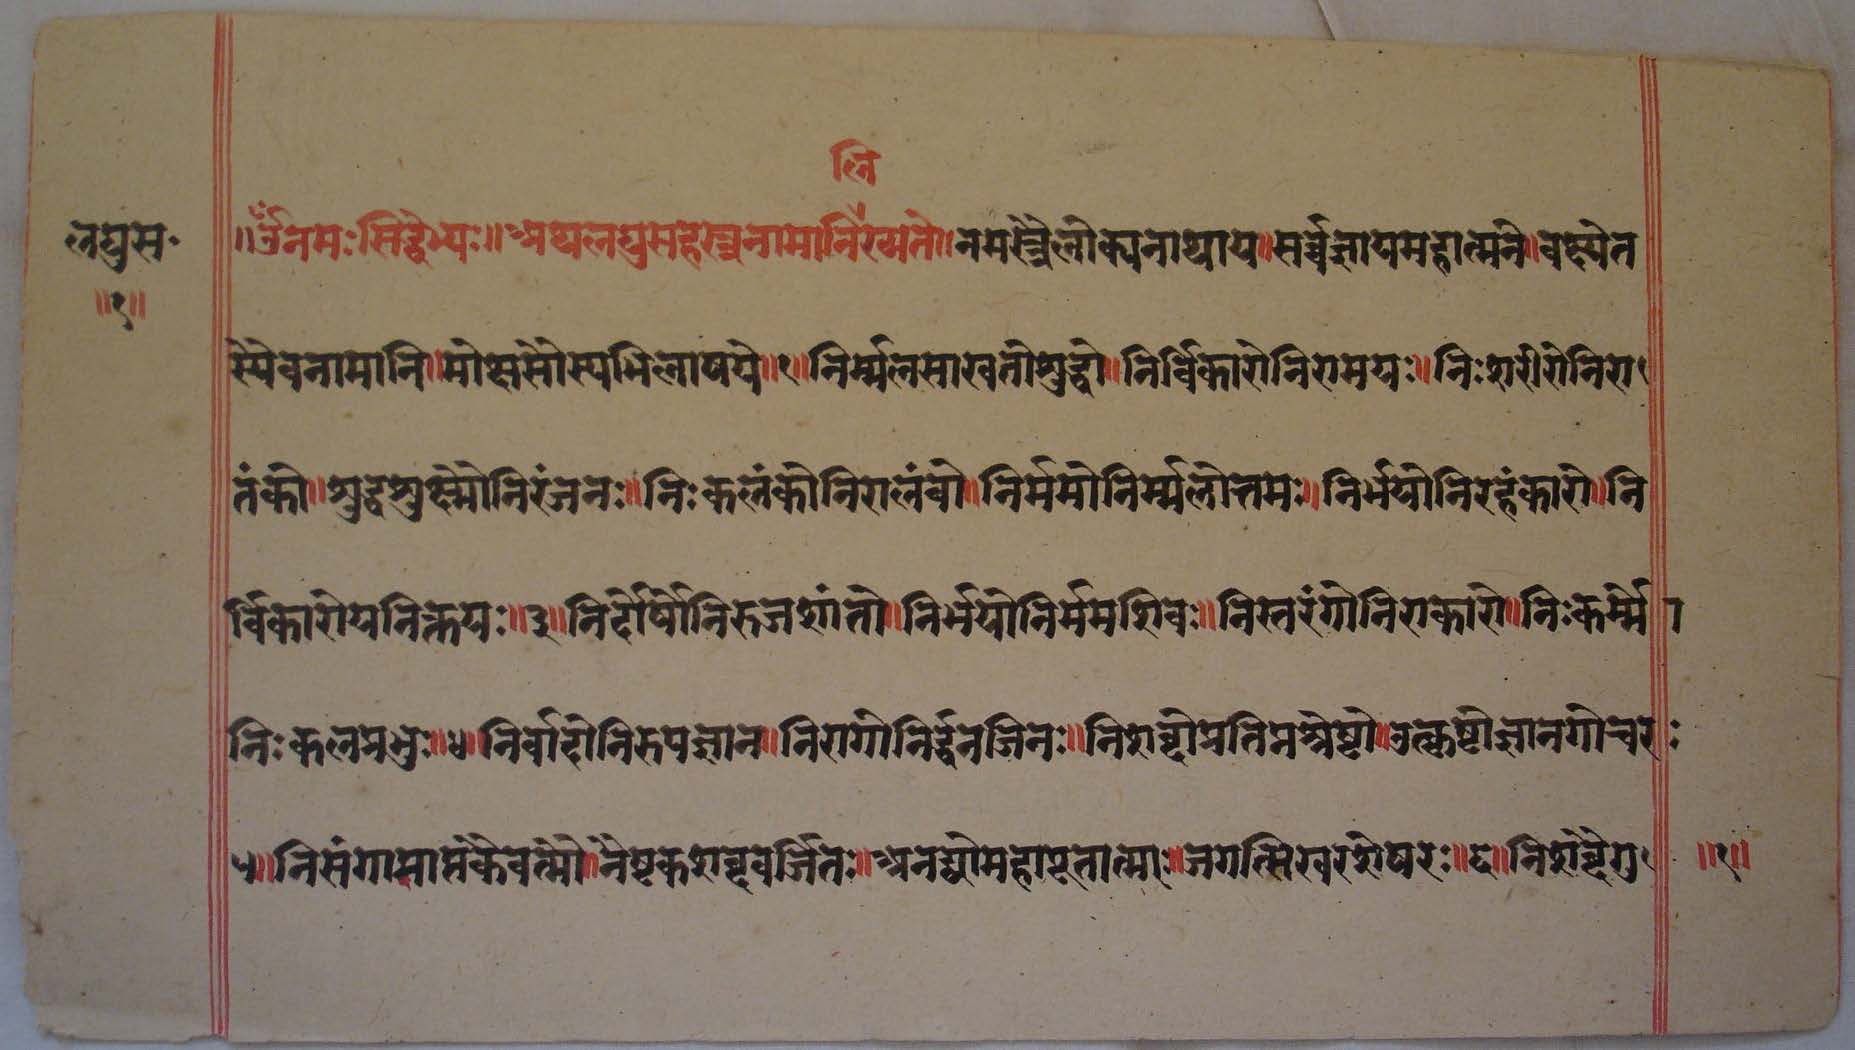 लि
लघुस॰
॥ॐनमःसिद्धेभ्यः॥अथलघुसहस्रनामानिख्यते॥नमस्त्रैलोक्यनाथाय॥सर्व्वज्ञायमहात्मने॥वक्ष्येत
॥१॥
स्यैवनामानि॥मोक्षसौस्यभिलाषये॥१॥निर्म्मलसाखतोशुद्धो॥निर्विकारोनिरामयः॥निःशरीरोनिरा
तंको॥शुद्धशुक्ष्मोनिरंजनः॥निःकलंकोनिरालंबो॥निर्ममोनिर्म्मलोत्तमः॥निर्भयोनिरहंकारो॥नि
र्विकारोयनिक्तयः॥३॥निर्दोर्षोनिरुजशांतो॥निर्भयोनिर्ममशिवः॥निस्तरंगोनिराकारो॥निःकर्म्मो
निःकलप्रभुः॥४॥निर्वादोनिरुपज्ञान॥निरागोनिर्द्धनजिनः॥निशब्दोप्रतिमश्रेष्टो॥उत्कृष्टोज्ञानगोचरः
५॥निसंगाप्राप्तकैवल्यो॥नैष्टकशब्दवर्जितः॥अनद्योमहापूतात्माः॥जगत्सिखरशेषरः॥६॥निशब्दैगु
॥१॥